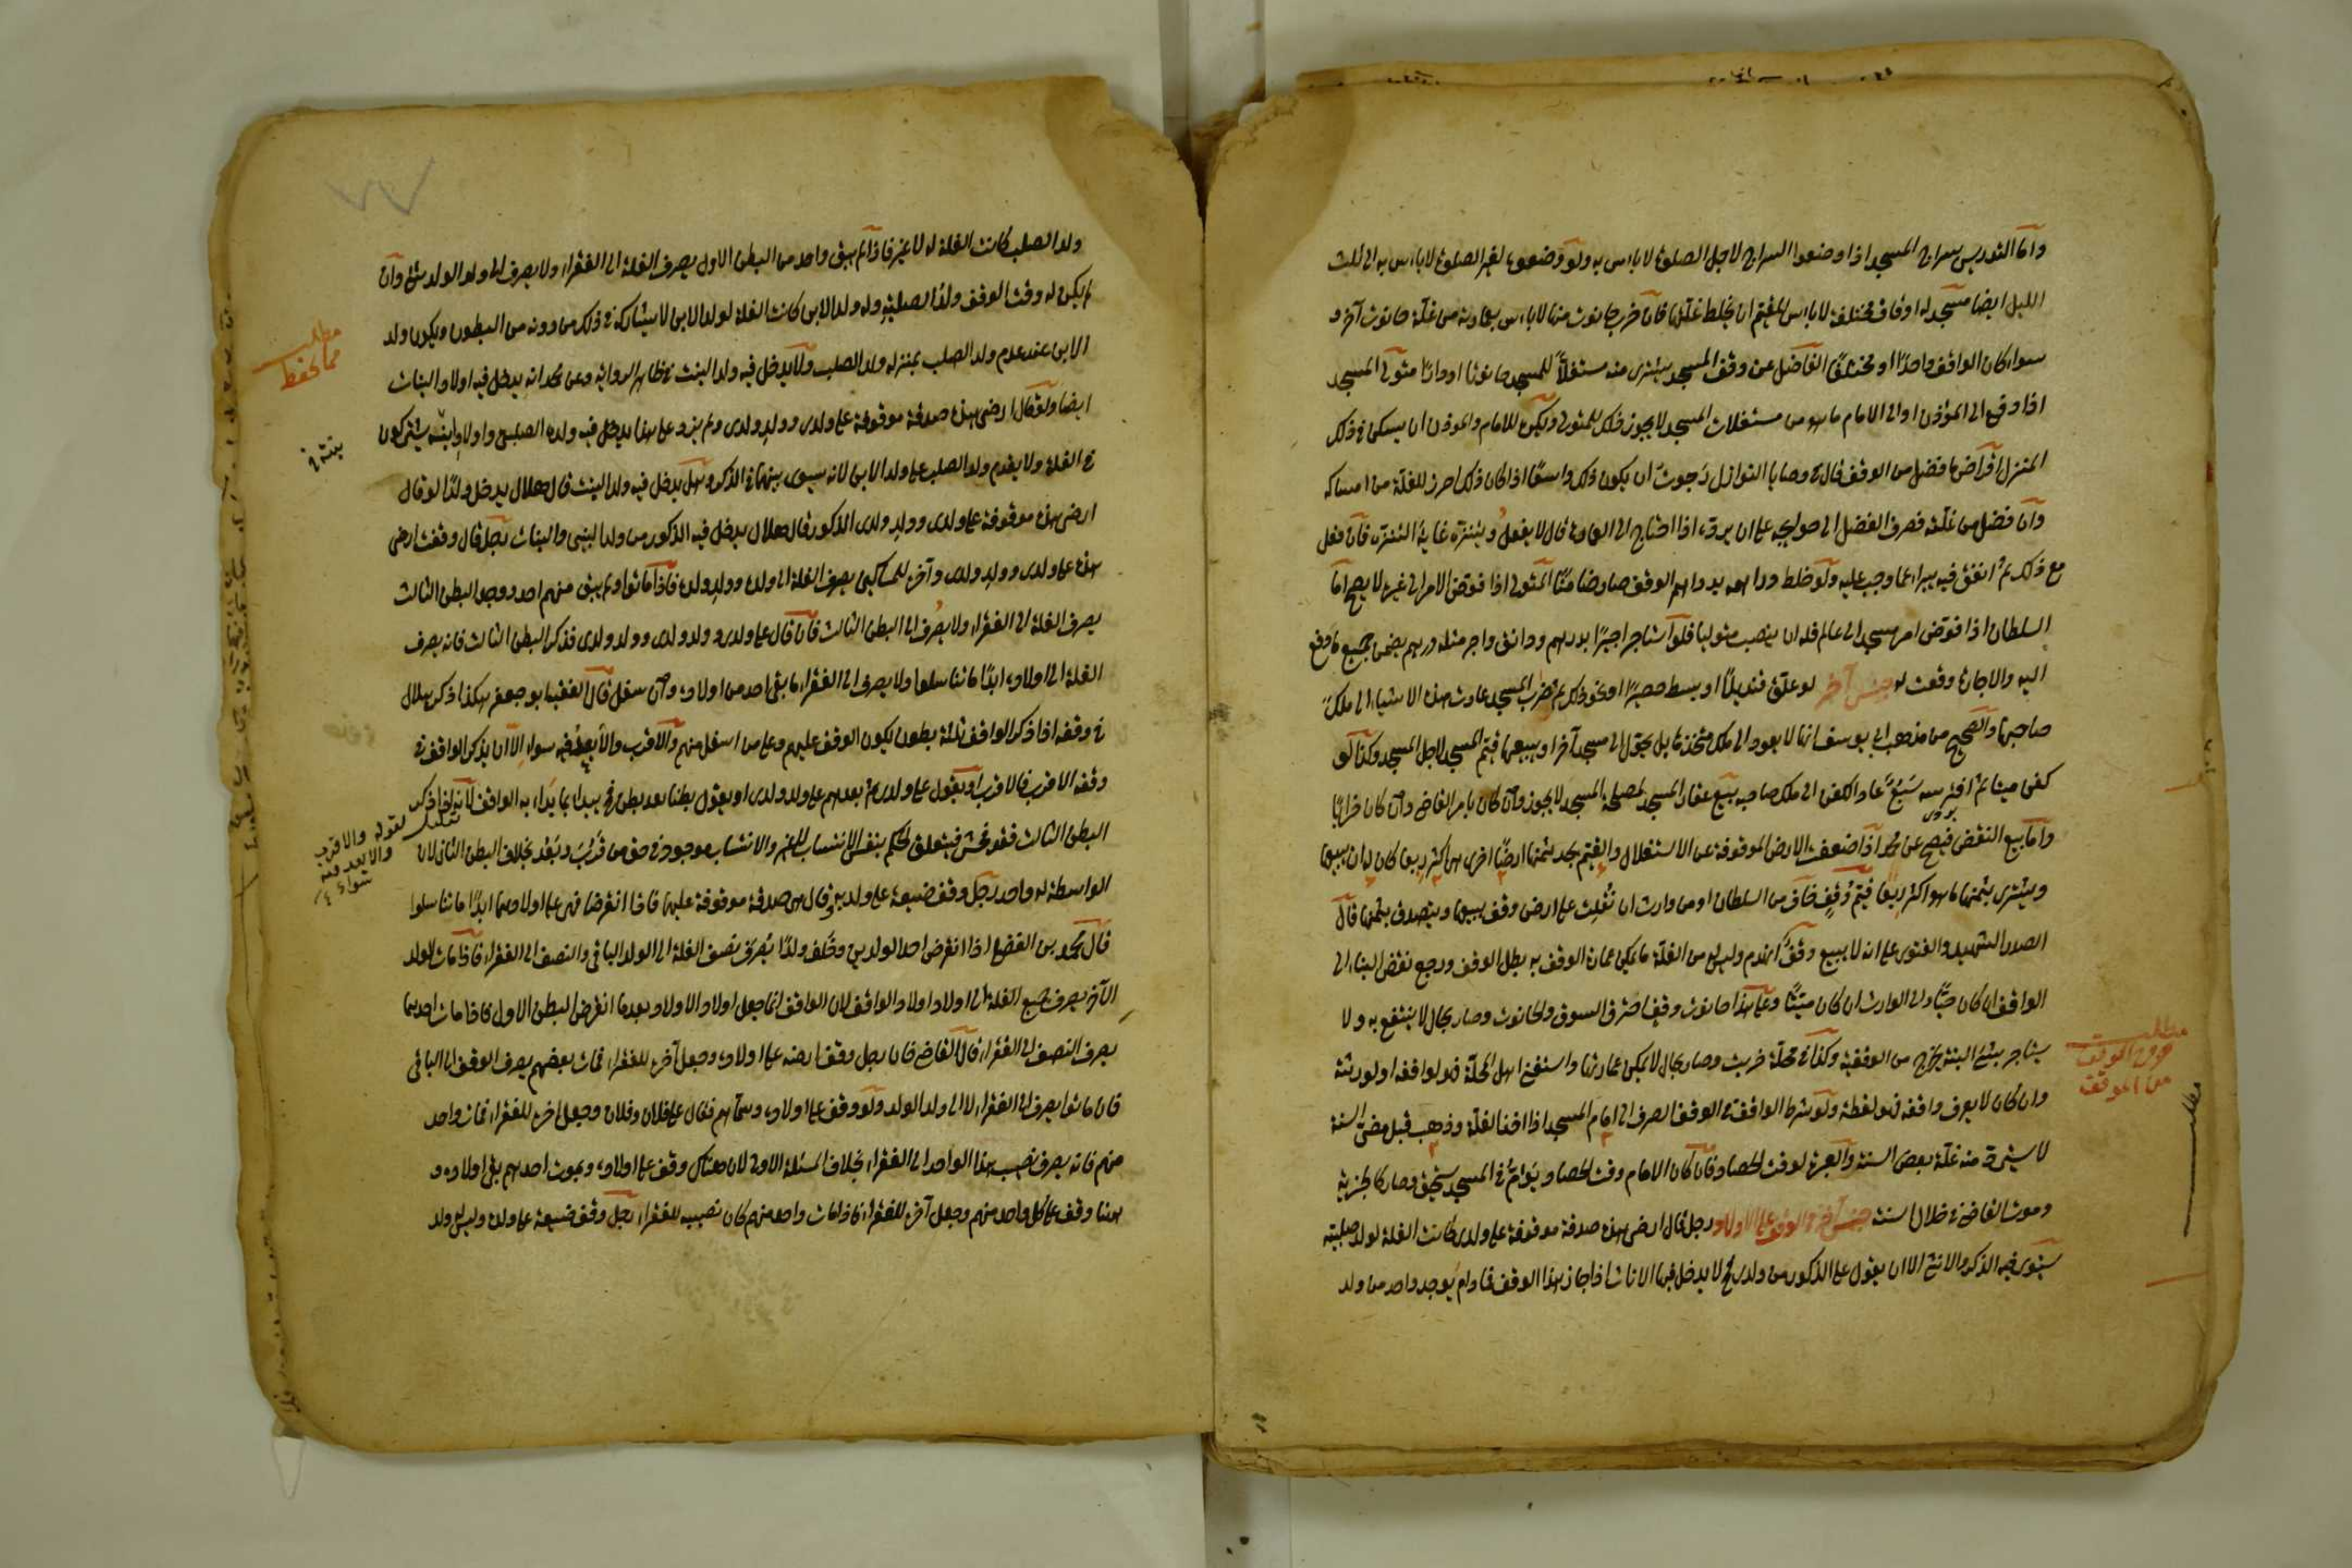 واما التدريس بسراج المسجد اذا وضعوا السراج لاجل الصلوة لا باس به ولو وضعوه لغير الصلوة لا باس به الى ثلث
الليل ايضا مسجد له اوقاف مختلفة لا باس للقيم ان يخلط غلتها فان خرب حانوت منها لا باس بعمارته من غلة حانوت آخر و
سواء كان الواقف واحدًا او مختلفًا الفاضل عن وقف المسجد يشترى منه مستغلاً للمسجد حانوتا او دارًا متولى المسجد
اذا دفع الى المؤذن او الى الامام ما هو من مستغلات المسجد لا يجوز ذلك للمتولى ويكره للامام والموذن ان يسكن في ذلك
المنزل اقراض ما فضل من الوقف قال في وصايا النوازل رجوت ان يكون ذلك واسعًا اذا كان ذلك احرز للغلة من امساكه
وان فضل من غلته فصرف الفضل الى حوايجه على ان يرده اذا احتاج الى العمارة قال لا يفعل ويتنزه غاية التنزه فان فعل
مع ذلك ثم انفق فيه يبراء عما وجب عليه ولو خلط دراهمه بدراهم الوقف صار ضامنًا المتولى اذا فوض الامر الى غيره لا يصح اما
السلطان اذا فوض امر مسجد الى عالم فله ان ينصب متوليا فلو استاجر اجيرًا بدرهم ودانق واجر مثله درهم يضمن جميع ما دفع
اليه والاجارة وقعت له جنس آخر لو علق قنديلاً او بسط حصيرًا او نحو ذلك ثم خرب المسجد عادت هذه الاشياء الى ملك
صاحبها والصحيح من مذهب ابى يوسف انها لا يعود الى ملك متخذها بل يحول الى مسجد آخر او يبيعها قيم المسجد لاجل المسجد وكذا لو
كفن ميتا ثم افترسه سبع عاد الكفن الى ملك صاحبه بيع عقار المسجد لمصلحة المسجد لا يجوز وان كان بامر القاضى وان كان خرابًا
واما بيع النقض فيصح عن محمد اذا ضعفت الارض الموقوفة عن الاستغلال والقيم يجد بثمنها ارضًا اخرى هى اكثر ريعا كان له ان يبيعها
ويشترى بثمنها ما هو اكثر ريعا قيم وقف خاف من السلطان او من وارث ان تغلب على ارض وقف يبيعها ويتصدق بثمنها قال
الصدر الشهيد والفتوى على انه لا يبيع وقف انهدم وليس له من الغلة ما يمكن عمارة الوقف به بطل الوقف ورجع نقض البناء الى
الواقف ان كان حيًا والى الوارث ان كان ميتًا وعلى هذا حانوت وقف احترق السوق والحانوت وصار بحال لا ينتفع به ولا
يستاجر بشئ البتة يخرج من الوقفية وكذا في محلة خربت وصار بحال لا يمكن عمارتها واستغنى اهل المحلة فهو لواقفه او لورثته
وان كان لا يعرف واقفه فهو لقطة ولو شرط الواقف في الوقف الصرف الى امام المسجد اذا اخذ الغلة وذهب قبل مضى السنة
لا يسترد منه غلة بعض السنة والعبرة لوقت الحصاد فان كان الامام وقت الحصاد يؤم في المسجد يستحق وصار كالجزية
وموت القاضى في خلال السنة جنس آخر في الوقف على الاولاد رجل قال ارضى هذه صدقة موقوفة على ولدى كانت الغلة لولد صلبه
يستوى فيه الذكر والانثى الا ان يقول على الذكور من ولدى فح لا يدخل فيها الاناث اذا جاز هذا الوقف فما دام يوجد واحد من ولد
مطلب
خروج الوقف
من الموقف
مطلب
ولد الصلب كانت الغلة له لا غير فاذا لم يبق واحد من البطن الاول يصرف الغلة الى الفقراء ولا يصرف الى ولد الولد شئ وان
لم يكن له وقت الوقف ولد الصلب وله ولد الابن كانت الغلة لولد الابن لا يشاركه في ذلك من دونه من البطون ويكون ولد
الابن عند عدم ولد الصلب بمنزلة ولد الصلب ولا يدخل فيه ولد البنت في ظاهر الرواية وعن محمد انه يدخل فيه اولاد البنات
ايضا ولو قال ارضى هذه صدقة موقوفة على ولدى وولد ولدى ولم يزد على هذا يدخل فيه ولده الصلبى واولاد ابنه يشتركون
في الغلة ولا يقدم ولد الصلب على ولد الابن لانه سوى بينهما في الذكر وهل يدخل فيه ولد البنت قال هلال يدخل ولدًا لو قال
ارضى هذه موقوفة على ولدى وولد ولدى الذكور قال هلال يدخل فيه الذكور من ولد البنين والبنات رجل قال وقفت ارضى
هذه على ولدى وولد ولدى وآخره للمساكين يصرف الغلة الى ولده وولد ولده فاذا ماتوا ولم يبق منهم احد ووجد البطن الثالث
يصرف الغلة الى الفقراء ولا يصرف الى البطن الثالث فان قال على ولدى وولد ولدى وولد ولد ولدى فذكر البطن الثالث فانه يصرف
الغلة الى اولاده ابدًا ما تناسلوا ولا يصرف الى الفقراء ما بقى احد من اولاده وان سفل قال الفقيه ابو جعفر هكذا ذكر هلال
في وقفه اذا ذكر الواقف ثلثة بطون يكون الوقف عليهم وعلى من اسفل منهم والاقرب والابعد فيه سواء الا ان يذكر الواقف في
وقفه الاقرب فالاقرب او يقول على ولدى ثم بعدهم على ولد ولدى او يقول بطنا بعد بطن فح يبداء بما يبداء به الواقف لانه لما ذكر
البطن الثالث فقد فحش فيتعلق الحكم بنفس الانتساب لا غير والانتساب موجود في حق من قرب وبعد بخلاف البطن الثانى لان
الواسطة له واحد رجل وقف ضيعة على ولديه وقال هى صدقة موقوفة عليهما فاذا انقرضا فهى على اولادهما ابدًا ما تناسلوا
قال محمد بن الفضل اذا انقرض احد الولدين وخلف ولدًا يصرف نصف الغلة الى الولد الباقى والنصف الى الفقراء فاذا مات الولد
الآخر يصرف جميع الغلة الى اولاد اولاد الواقف لان الواقف انما جعل اولاد الاولاد بعد ما انقرض البطن الاول فاذا مات احدهما
يصرف النصف الى الفقراء قال القاضى خان رجل وقف ارضه على اولاده وجعل آخره للفقراء فمات بعضهم يصرف الوقف الى الباقى
فان ماتوا يصرف الى الفقراء لا الى ولد الولد ولو وقف على اولاده وسماهم فقال على فلان وفلان وجعل آخره للفقراء فمات واحد
منهم فانه يصرف نصيب هذا الواحد الى الفقراء بخلاف المسئلة الاولى لان هناك وقف على اولاده وبموت احدهم بقى اولاده و
هنا وقف على كل واحد منهم وجعل آخره للفقراء فاذا مات واحد منهم كان نصيبه للفقراء رجل وقف ضيعة على ولده وليس له ولد
مطلب
مما يحفظ
تعليل لقوله والاقرب
والابعد فيه
سواء